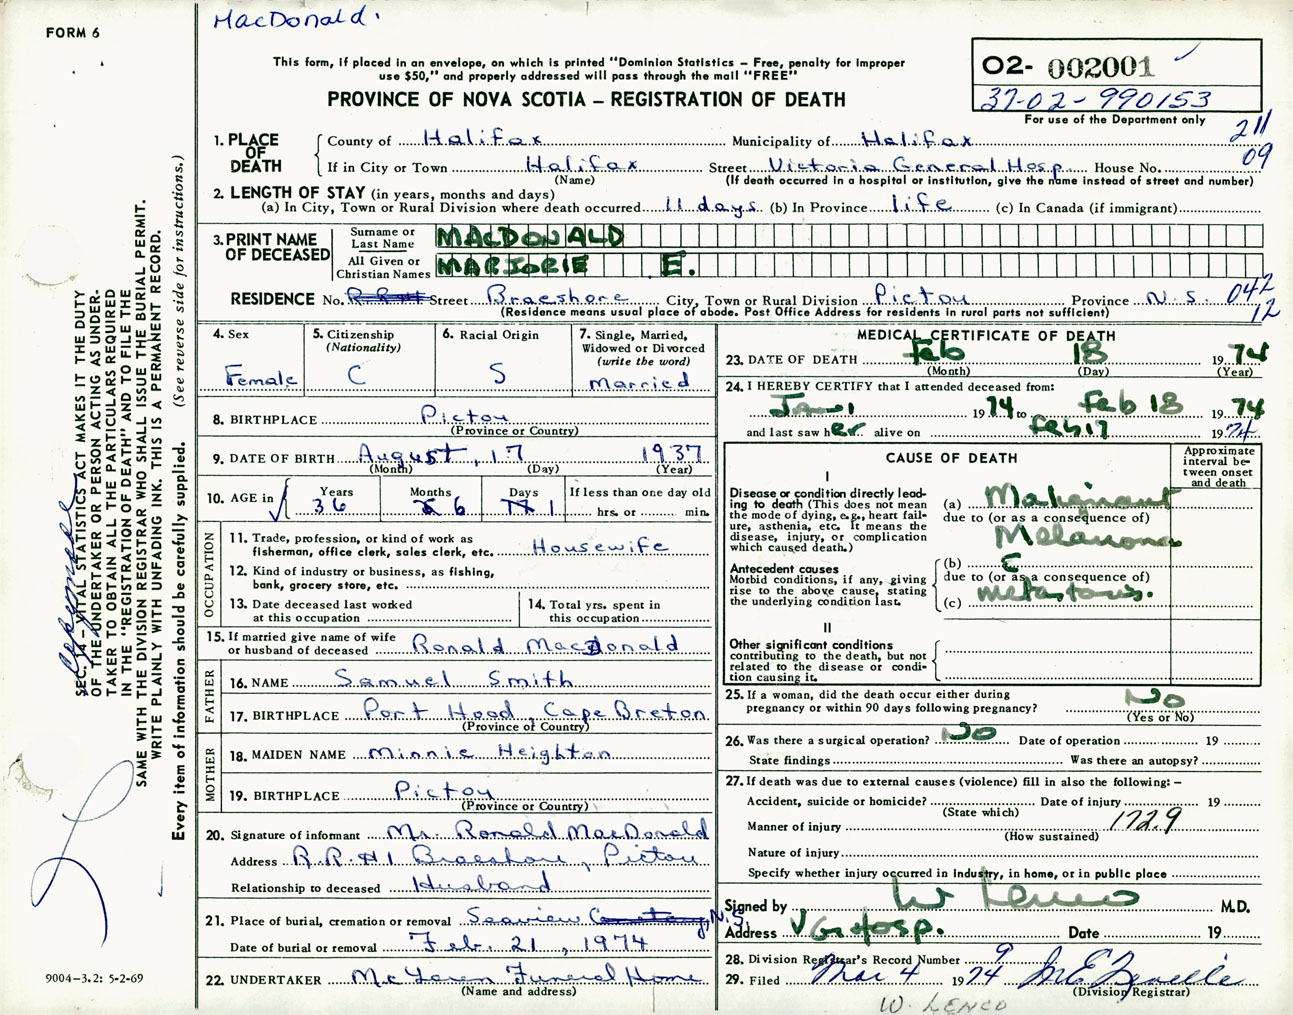 FORM 6
MacDonald.
This form, if placed in an envelope, on which is printed "Dominion Statistics – Free, penalty for improper
use $50," and properly addressed will pass through the mail "FREE"
PROVINCE OF NOVA SCOTIA – REGISTRATION OF DEATH
O2- 002001
37-02-990153
For use of the Department only
211
09
1. PLACE OF DEATH
County of Halifax Municipality of Halifax
If in City or Town Halifax Street Victoria General Hosp. House No.
(Name) (If death occurred in a hospital or institution, give the name instead of street and number)
2. LENGTH OF STAY (in years, months and days)
(a) In City, Town or Rural Division where death occurred 11 days (b) In Province life (c) In Canada (if immigrant)
3. PRINT NAME OF DECEASED
Surname or Last Name MACDONALD
All Given or Christian Names MARJORIE E.
RESIDENCE No. Street Braeshore City, Town or Rural Division Pictou Province N.S. 042
(Residence means usual place of abode. Post Office Address for residents in rural parts not sufficient) 12
4. Sex Female
5. Citizenship (Nationality) C
6. Racial Origin S
7. Single, Married, Widowed or Divorced (write the word) Married
8. BIRTHPLACE Pictou
(Province or Country)
9. DATE OF BIRTH August, 17 1937
(Month) (Day) (Year)
10. AGE in Years 36 Months 6 Days 1 If less than one day old
hrs. or min.
OCCUPATION
11. Trade, profession, or kind of work as
fisherman, office clerk, sales clerk, etc. Housewife
12. Kind of industry or business, as fishing,
bank, grocery store, etc.
13. Date deceased last worked
at this occupation
14. Total yrs. spent in
this occupation
15. If married give name of wife
or husband of deceased Ronald MacDonald
FATHER
16. NAME Samuel Smith
17. BIRTHPLACE Port Hood, Cape Breton
(Province or Country)
MOTHER
18. MAIDEN NAME Minnie Heighton
19. BIRTHPLACE Pictou
(Province or Country)
20. Signature of informant Mr. Ronald MacDonald
Address R.R.#1 Braeshore, Pictou
Relationship to deceased Husband
21. Place of burial, cremation or removal Seaview Cemetery, N.S.
Date of burial or removal Feb. 21, 1974
22. UNDERTAKER McLaren Funeral Home
(Name and address)
MEDICAL CERTIFICATE OF DEATH
23. DATE OF DEATH Feb 18 1974
(Month) (Day) (Year)
24. I HEREBY CERTIFY that I attended deceased from:
Jan 1 1974 to Feb 18 1974
and last saw her alive on Feb 17 1974
CAUSE OF DEATH
Approximate
interval be-
tween onset
and death
I
Disease or condition directly lead-
ing to death (This does not mean
the mode of dying, e.g., heart fail-
ure, asthenia, etc. It means the
disease, injury, or complication
which caused death.)
(a) Malignant
due to (or as a consequence of)
Melanoma
Antecedent causes
Morbid conditions, if any, giving
rise to the above cause, stating
the underlying condition last.
(b) c
due to (or as a consequence of)
(c) metastases.
II
Other significant conditions
contributing to the death, but not
related to the disease or condi-
tion causing it.
25. If a woman, did the death occur either during
pregnancy or within 90 days following pregnancy? No
(Yes or No)
26. Was there a surgical operation? No Date of operation 19
State findings Was there an autopsy?
27. If death was due to external causes (violence) fill in also the following: –
Accident, suicide or homicide? Date of injury 19
(State which)
Manner of injury 172.9
(How sustained)
Nature of injury
Specify whether injury occurred in Industry, in home, or in public place
Signed by W Lenco M.D.
Address V G Hosp. Date 19
28. Division Registrar's Record Number 9
29. Filed Mar 4 1974
(Division Registrar)
W. LENCO
SEC. 14 – VITAL STATISTICS ACT MAKES IT THE DUTY
OF THE UNDERTAKER OR PERSON ACTING AS UNDER-
TAKER TO OBTAIN ALL THE PARTICULARS REQUIRED
IN THE "REGISTRATION OF DEATH" AND TO FILE THE
SAME WITH THE DIVISION REGISTRAR WHO SHALL ISSUE THE BURIAL PERMIT.
WRITE PLAINLY WITH UNFADING INK. THIS IS A PERMANENT RECORD.
Every item of information should be carefully supplied. (See reverse side for instructions.)
9004-3.2: 5-2-69